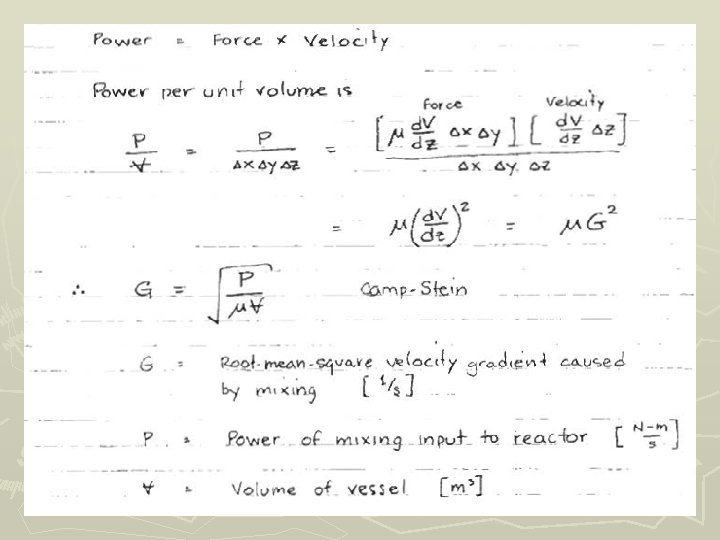 Power = Force x Velocity
Power per unit volume is
Force Velocity
P/V̶ = P/(Δx Δy Δz) = [μ dV/dz Δx Δy] [dV/dz Δz] / (Δx Δy Δz)
= μ(dV/dz)² = μG²
∴ G = √(P/(μV̶)) Camp-Stein
G = Root-mean-square velocity gradient caused
by mixing [1/s]
P = Power of mixing input to reactor [N-m/s]
V̶ = Volume of vessel [m³]